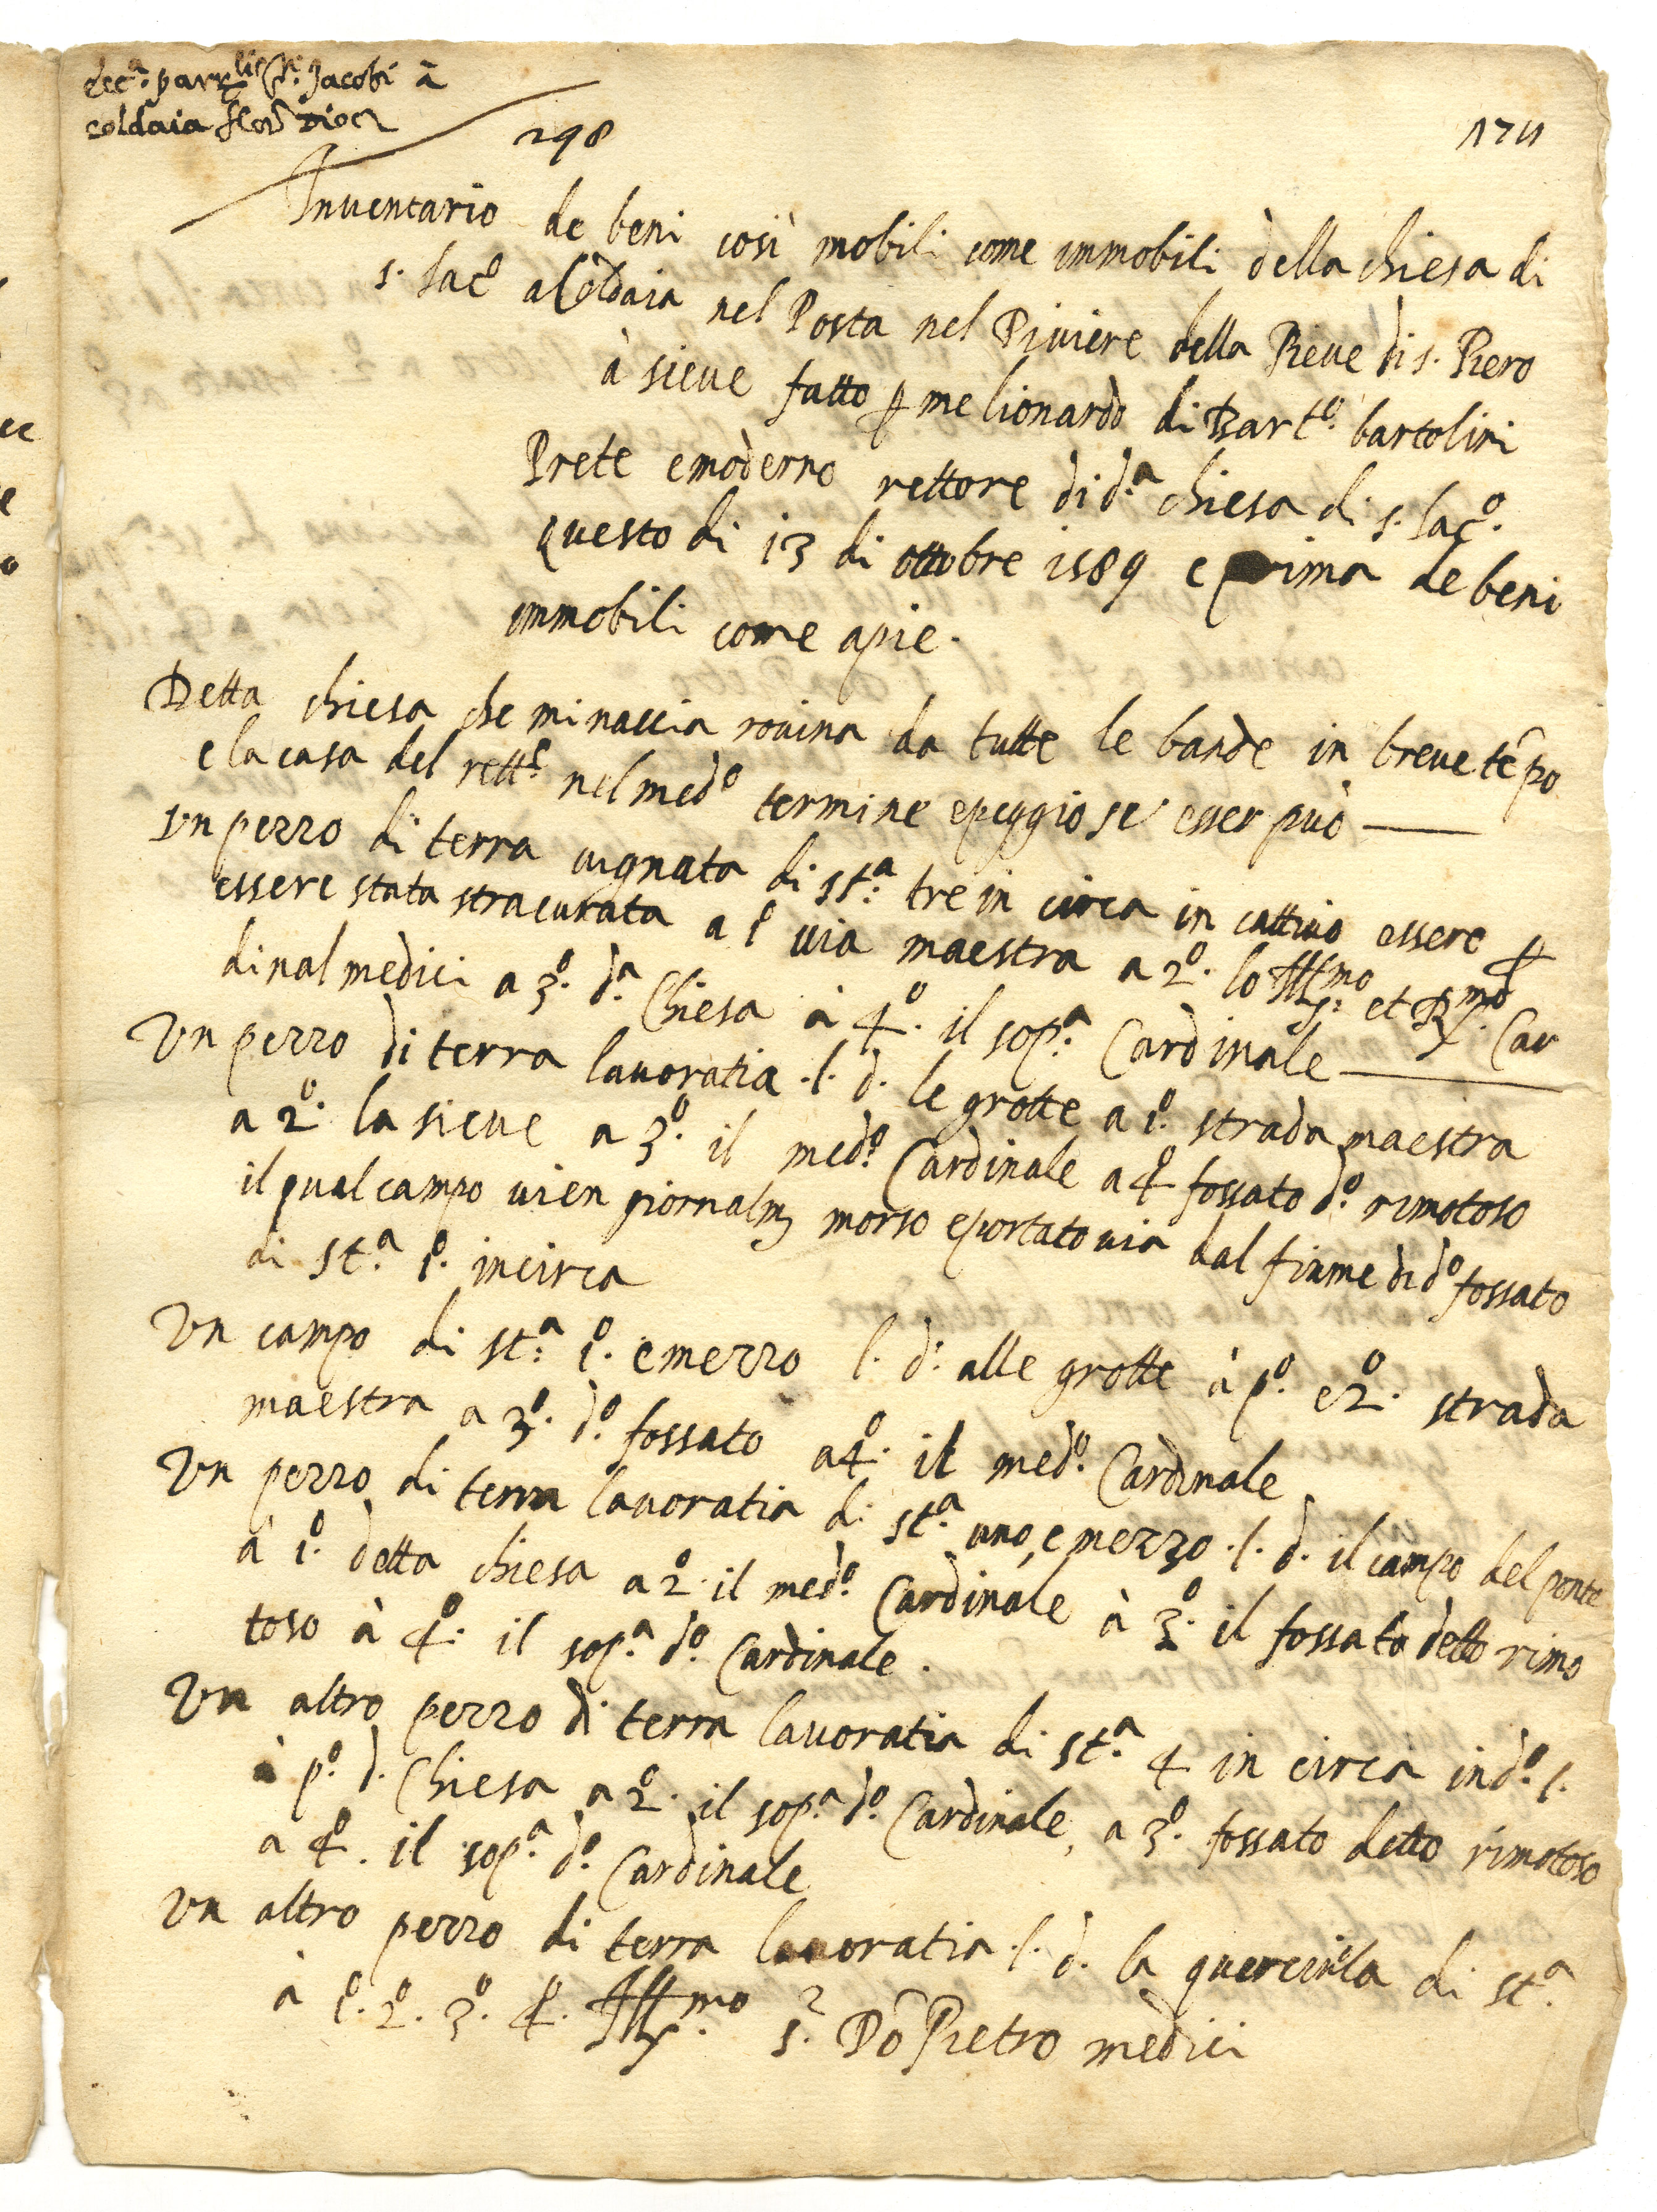 ecc.ª parr.lis S.ti Jacobi à
coldaia flor. dioc
298
1711
Inventario de beni così mobili come immobili della chiesa di
s. Iac.º a Coldaia nel Posta nel Piviere della Pieve di s. Piero
à sieve fatto p me lionardo di Bart.º bartolini
Prete e moderno rettore di d.ª chiesa di s. Iac.º
questo di 13 di ottobre 1589 e prima de beni
immobili come apie.
Detta chiesa che minaccia rovina da tutte le bande in breve tēpo
e la casa del rett.e nel med.º termine e peggio se esser può
Un pezzo di terra vignata di st.ª tre in circa in cattivo essere p
essere stata stracurata a 1º via maestra a 2º. lo Ill.mo s.r et R.mo Car
dinal medici a 3.º d.ª Chiesa à 4.º il sop.ª Cardinale
Un pezzo di terra lavoratia .l. d. le grotte a 1.º strada maestra
a 2.º la sieve a 3.º il med.º Cardinale a 4º fossato d.º rimotoso
il qual campo vien giornalm morso e portato via dal fiume di d.º fossato
di st.ª 1.º incirca
Un campo di st.ª 1.º e mezzo l. d. alle grotte à p.º e 2.º strada
maestra a 3.º d.º fossato a 4.º il med.º Cardinale
Un pezzo di terra lavoratia di st.ª uno, e mezzo .l. d. il campo del ponte
à 1.º detta chiesa a 2.º il med.º Cardinale à 3.º il fossato detto rimo
toso à 4.º il sop.ª d.º Cardinale.
Un altro pezzo di terra lavoratia di st.ª 4 in circa in d.º l.
à p.º d. Chiesa a 2.º il sop.ª d.º Cardinale, a 3.º fossato detto rimotoso
a 4.º il sop.ª d.º Cardinale
Un altro pezzo di terra lavoratia .l. d. la quercivola di st.ª
à 1.º 2.º 3.º 4.º Ill.mo s.r Dō Pietro medici